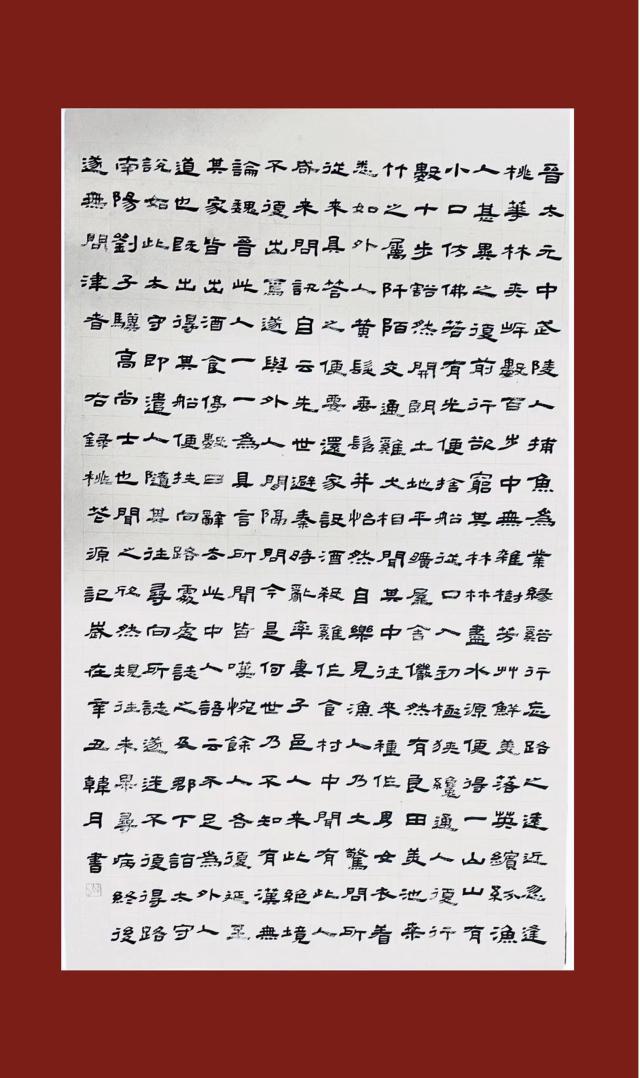 晉太元中武陵人捕魚為業緣谿行忘路之遠近忽逢
桃華林夾岸數百步中無雜樹芳艸鮮美落英繽紛漁
人甚異之復前行欲窮其林林盡水源便得一山山有
小口仿佛若有光便捨船從口入初極狹纔通人復行
數十步豁然開朗土地平曠屋舍儼然有良田美池桑
竹之屬阡陌交通雞犬相聞其中往來種作男女衣着
悉如外人黃髮垂髫并怡然自樂見漁人乃大驚問所
從來具答之便要還家設酒殺雞作食村中聞有此人
咸來問訊自云先世避秦時亂率妻子邑人來此絕境
不復出焉遂與外人間隔問今是何世乃不知有漢無
論魏晉此人一一為具言所聞皆嘆惋餘人各復延至
其家皆出酒食停數日辭去此中人語云不足為外人
道也既出得其船便扶向路處處誌之及郡下詣太守
說如此太守即遣人隨其往尋向所誌遂迷不復得路
南陽劉子驥高尚士也聞之欣然規往未果尋病終後
遂無問津者 右錄桃花源記歲在辛丑韓月書